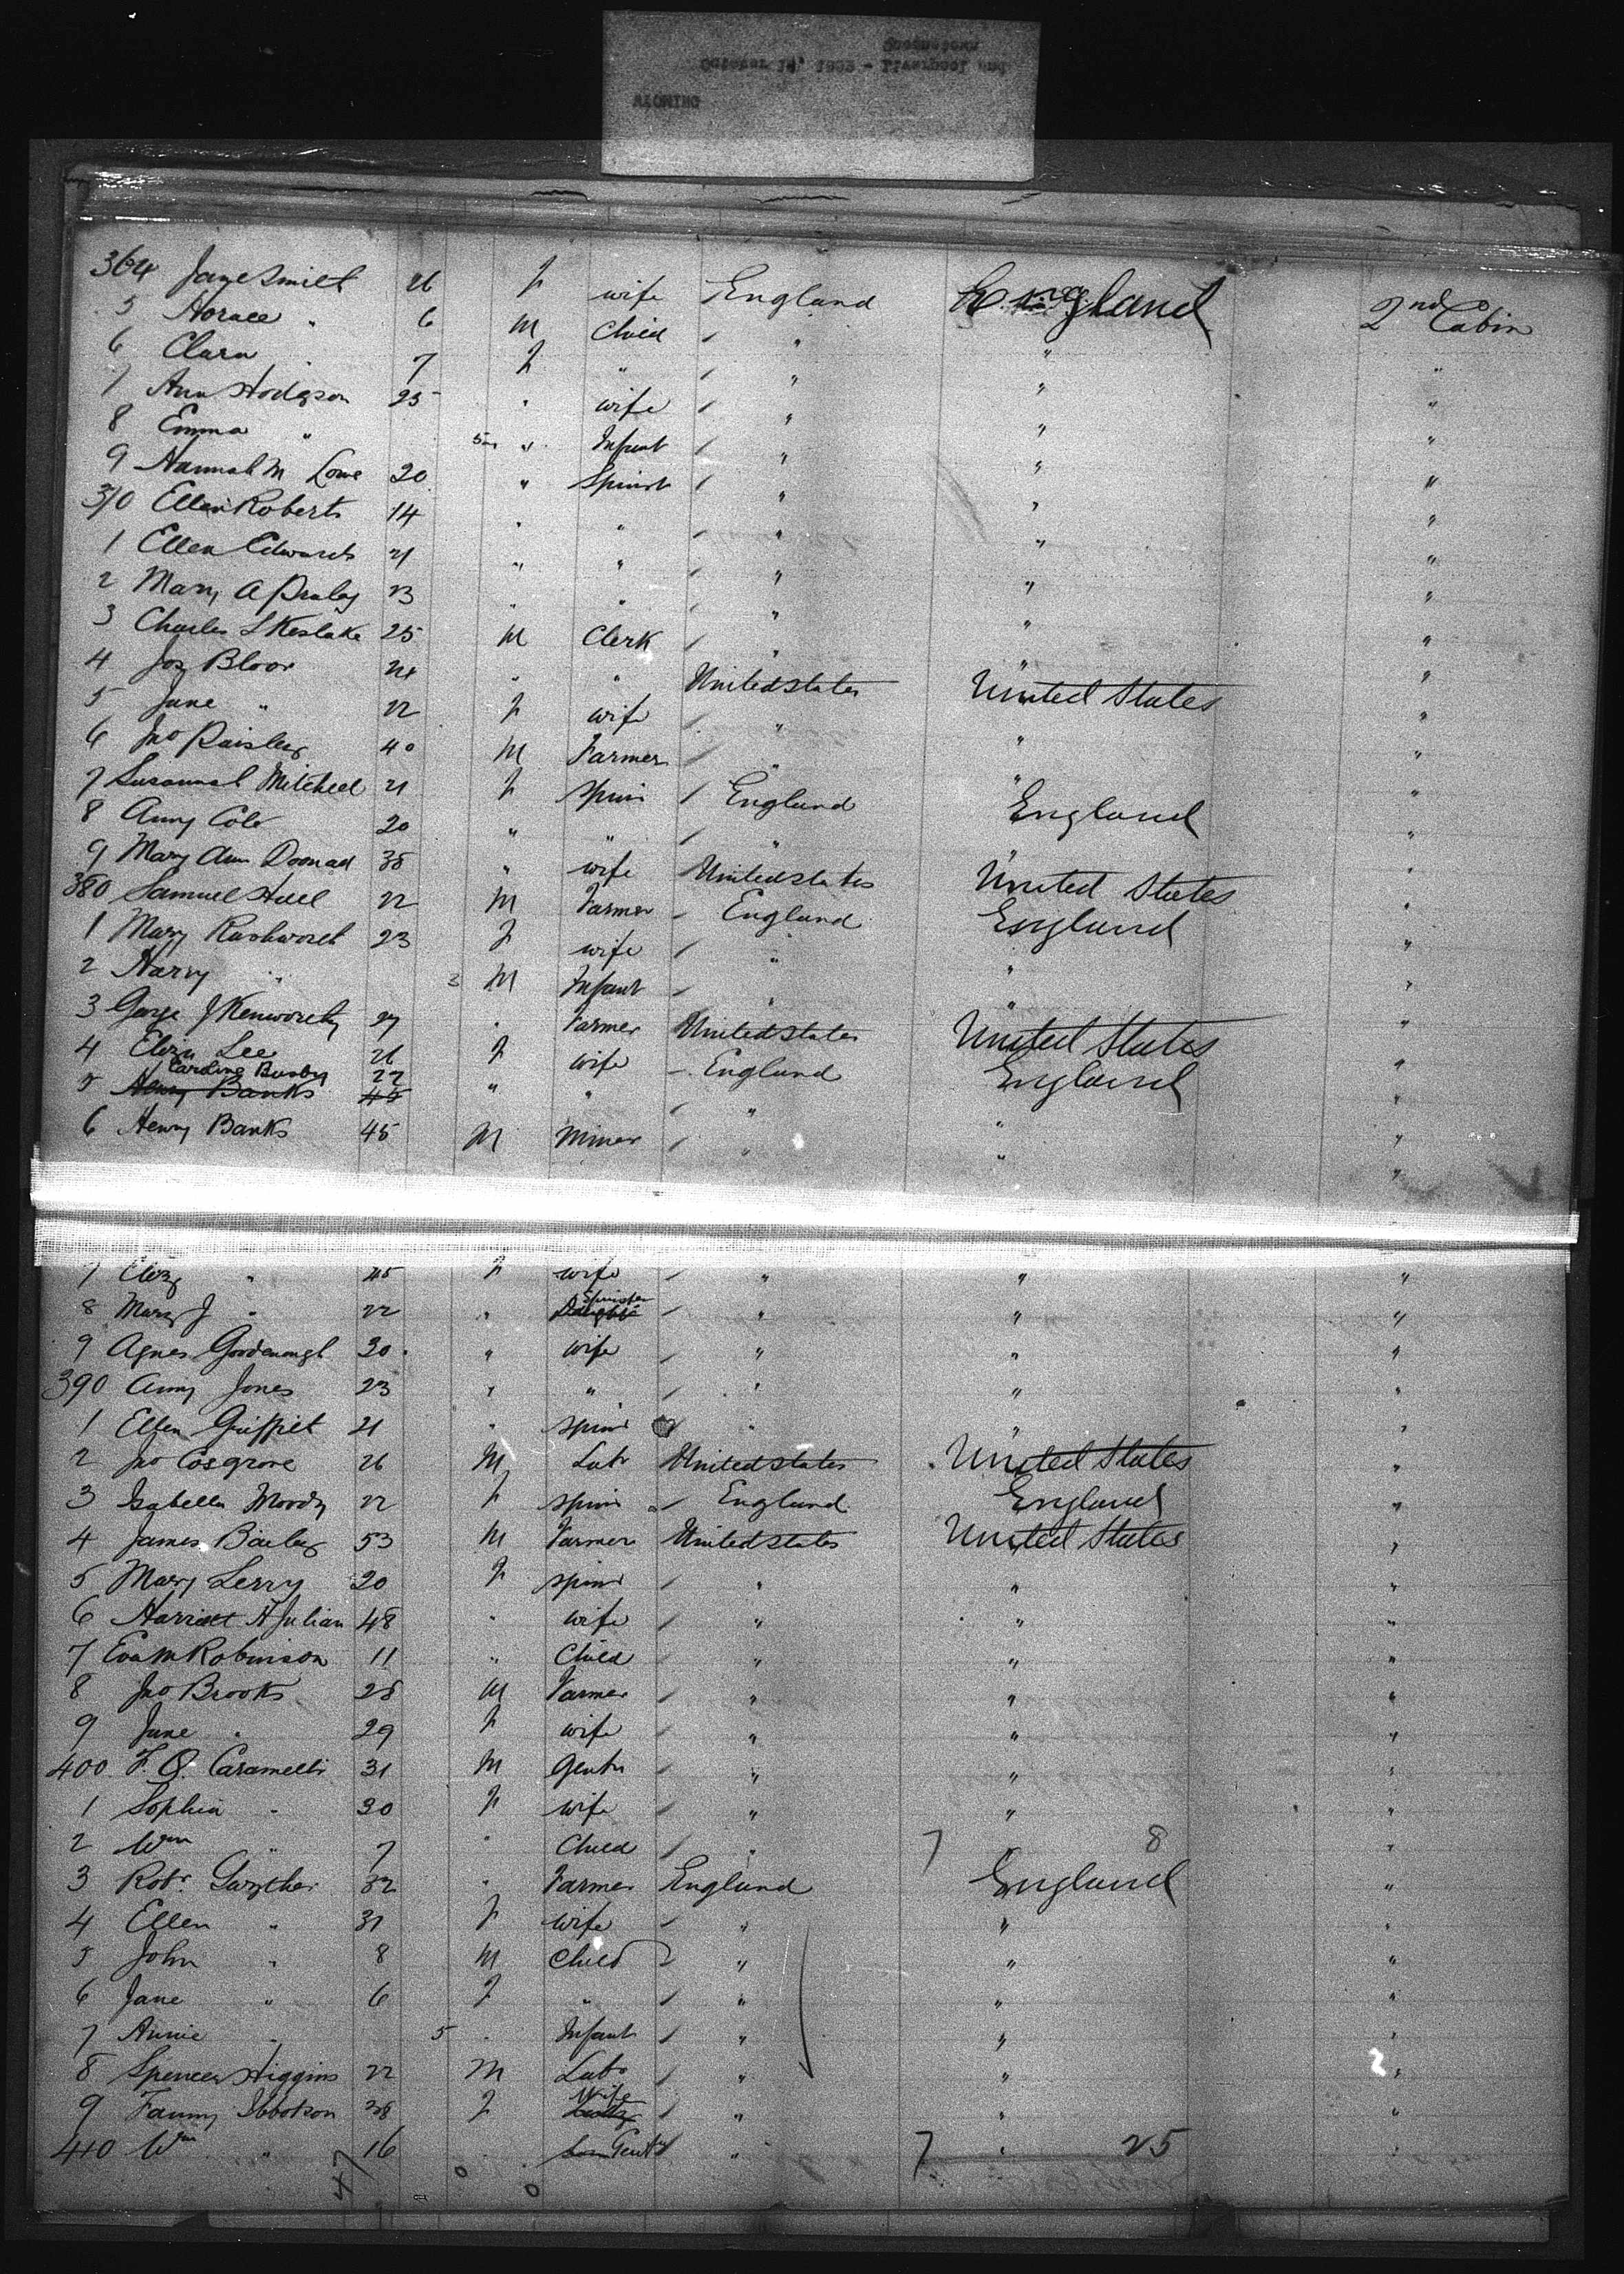 Queenstown
October 14, 1903 - Liverpool and
WYOMING
364 Jane Smith 26 F wife England England 2nd Cabin
5 Horace " 6 M Child / " " "
6 Clara " 7 F " / " " "
7 Ann Hodgson 25 " wife / " " "
8 Emma " 5m " Infant / " " "
9 Hannah M Lowe 20 " Spinst / " " "
370 Ellen Roberts 14 " " / " " "
1 Ellen Edwards 21 " " / " " "
2 Mary A 23 " " / " " "
3 Charles L Keslake 25 M Clerk / " " "
4 Jos Bloor 24 " " United States United States "
5 Jane " 22 F wife / " " "
6 Jno Paisley 40 M Farmer / " " "
7 Susannah Mitchell 21 F spin / England England "
8 Amy Cole 20 " " / " " "
9 Mary Ann 35 " wife United States United States "
380 Samuel Hull 22 M Farmer - England England "
1 Mary Rushworth 23 F wife / " " "
2 Harry " 3 M Infant / " " "
3 George J Kenworthy 27 " Farmer United States United States "
4 Eliza Lee 26 F wife - England England "
Caroline Busby 22
5 Henry Banks 45 " " / " " "
6 Henry Banks 45 M Miner / " " "
7 Eliz " 45 F wife / " " "
Spinster
8 Mary J " 22 " Daughter / " " "
9 Agnes Goodenough 30 " wife / " " "
390 Amy Jones 23 " " / " " "
1 Ellen Griffith 21 " spins " " "
2 Jno Cosgrove 26 M Labr United States United States "
3 Isabella Moody 22 F spins / England England "
4 James Bailey 53 M Farmer United States United States "
5 Mary Lerry 20 F spins / " " "
6 Harriett H Julian 48 " wife / " " "
7 Eva M Robinson 11 " Child / " " "
8 Jno Brooks 28 M Farmer / " " "
9 Jane " 29 F wife / " " "
400 F. Q. Caramelli 31 M Gentn / " " "
1 Sophia " 30 F wife / " " "
2 Wm " 7 " Child / " 7 8 "
3 Robt. Gwyther 32 " Farmer England England "
4 Ellen " 31 F wife / " " "
5 John " 8 M Child / " " "
6 Jane " 6 F " / " " "
7 Annie " 5 " Infant / " " "
8 Spencer Higgins 22 M Labr / " " "
Wife
9 Fanny Ibbotson 38 F / " " "
410 Wm " 16 " Son Gent / " 7 " 25 "
47 0 0